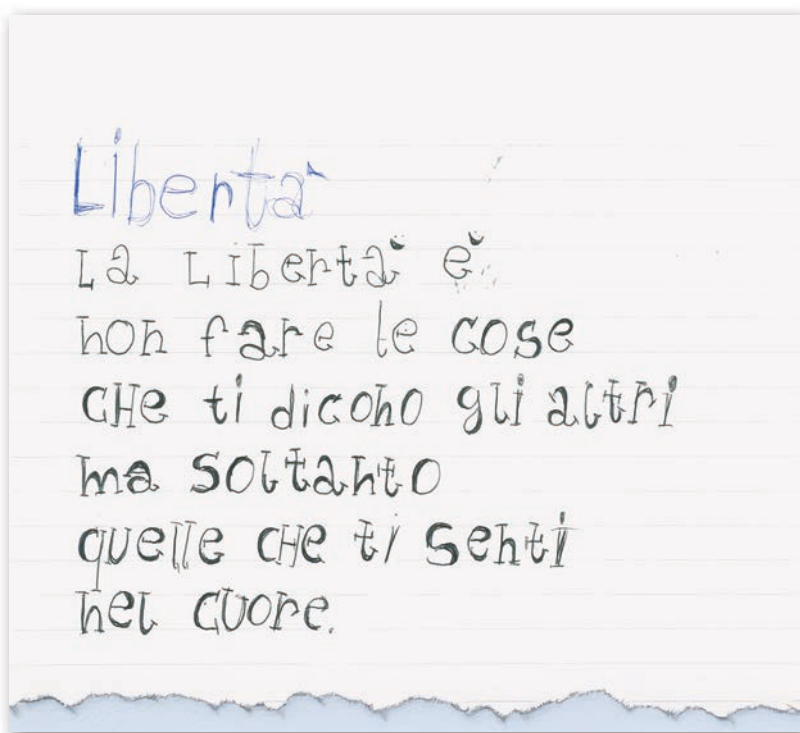 Libertà
La Libertà è
non fare le cose
CHe ti dicono gli altri
ma soltanto
quelle CHe ti senti
nel cuore.